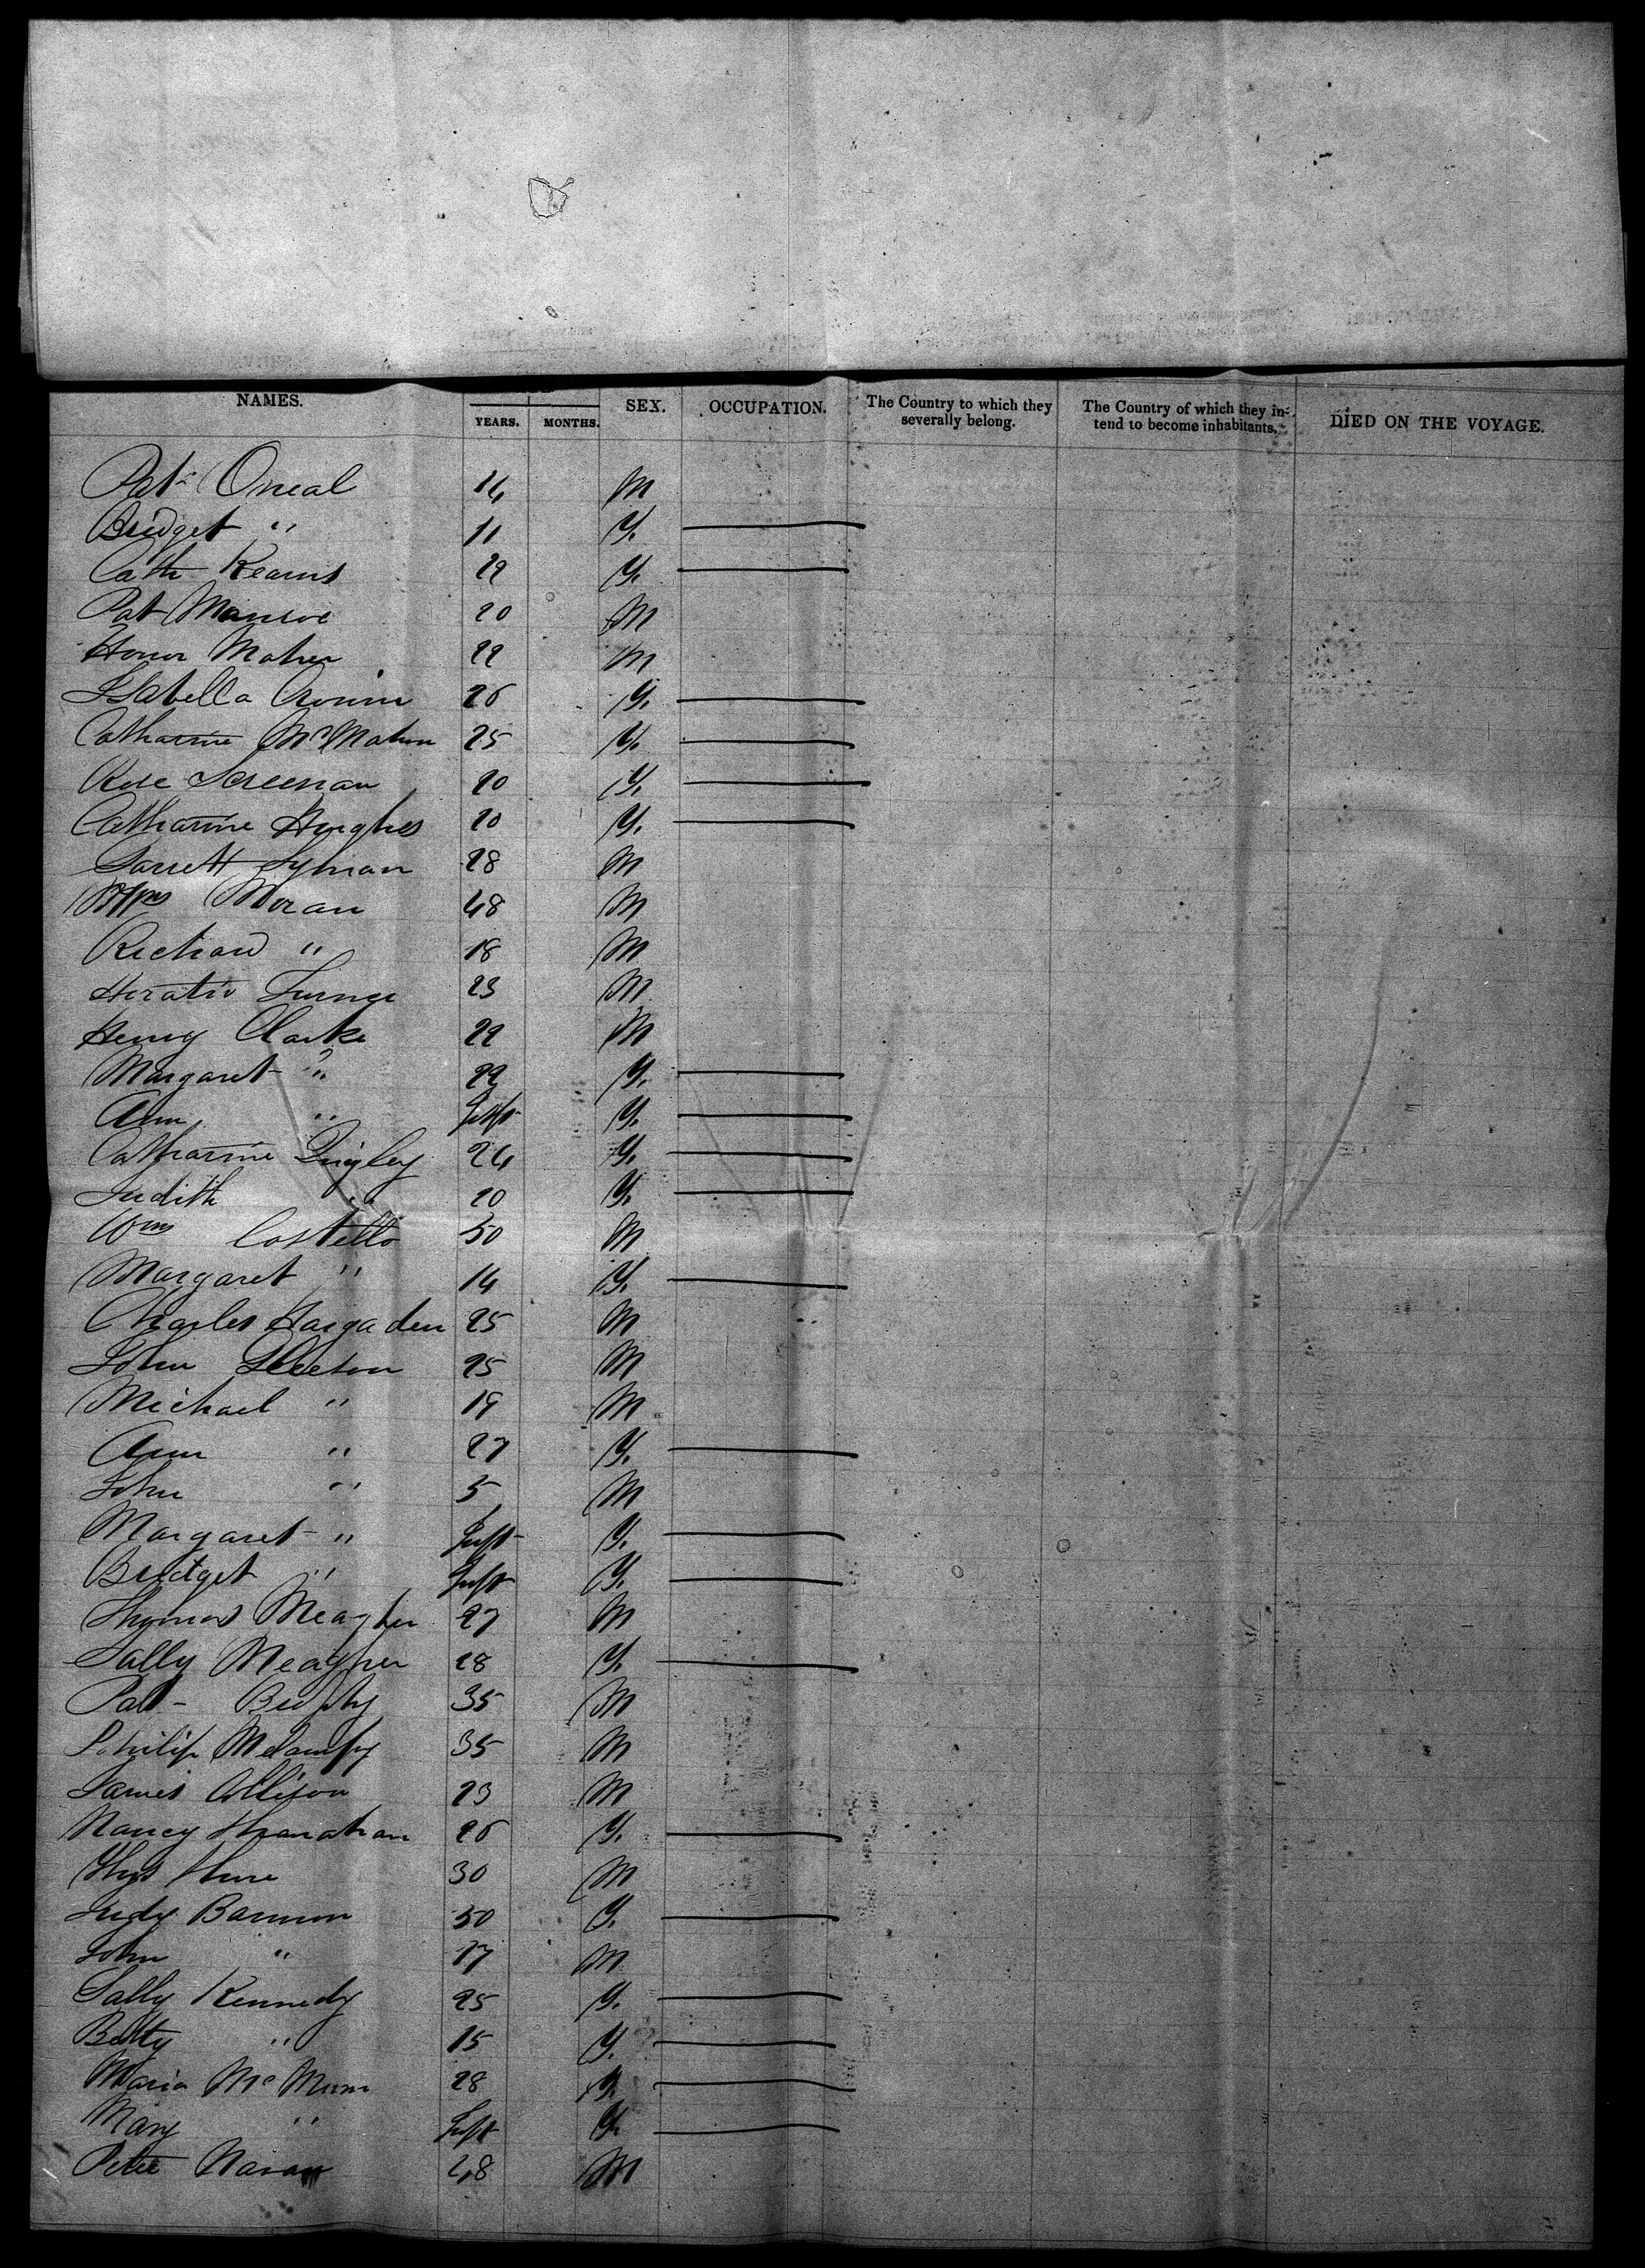 NAMES. YEARS. MONTHS. SEX. OCCUPATION. The Country to which they severally belong. The Country of which they intend to become inhabitants. DIED ON THE VOYAGE.
Pat Oneal 14 M
Bridget " 11 F.
Cath Kearns 29 F.
Pat 20 M
Honor Maher 22 M
Isabella Cronin 26 F.
Catharine McMahon 25 F.
Rose 20 F.
Catharine Hughes 20 F.
Garrett Lyman 28 M
Moran 48 M
Richard " 18 M
Horatio 23 M
Henry Clarke 22 M
Margaret " 22 F.
Ann " Inft F.
Catharine Quigley 24 F.
Judith " 20 F.
Wm Costello 50 M
Margaret " 14 F.
Charles Hargaden 25 M
John 25 M
Michael " 19 M
Ann " 27 F.
John " 5 M
Margaret " Inft F.
Bridget " Inft F.
Thomas Meagher 27 M
Sally Meagher 28 F.
Pat Brophy 35 M
Philip Melampy 35 M
James Allison 23 M
Nancy 26 F.
30 M
Judy Bannon 50 F.
John " 17 M
Sally Kennedy 25 F.
Betty " 15 F.
Maria Mc 28 F.
Mary " Inft F.
Peter 48 M